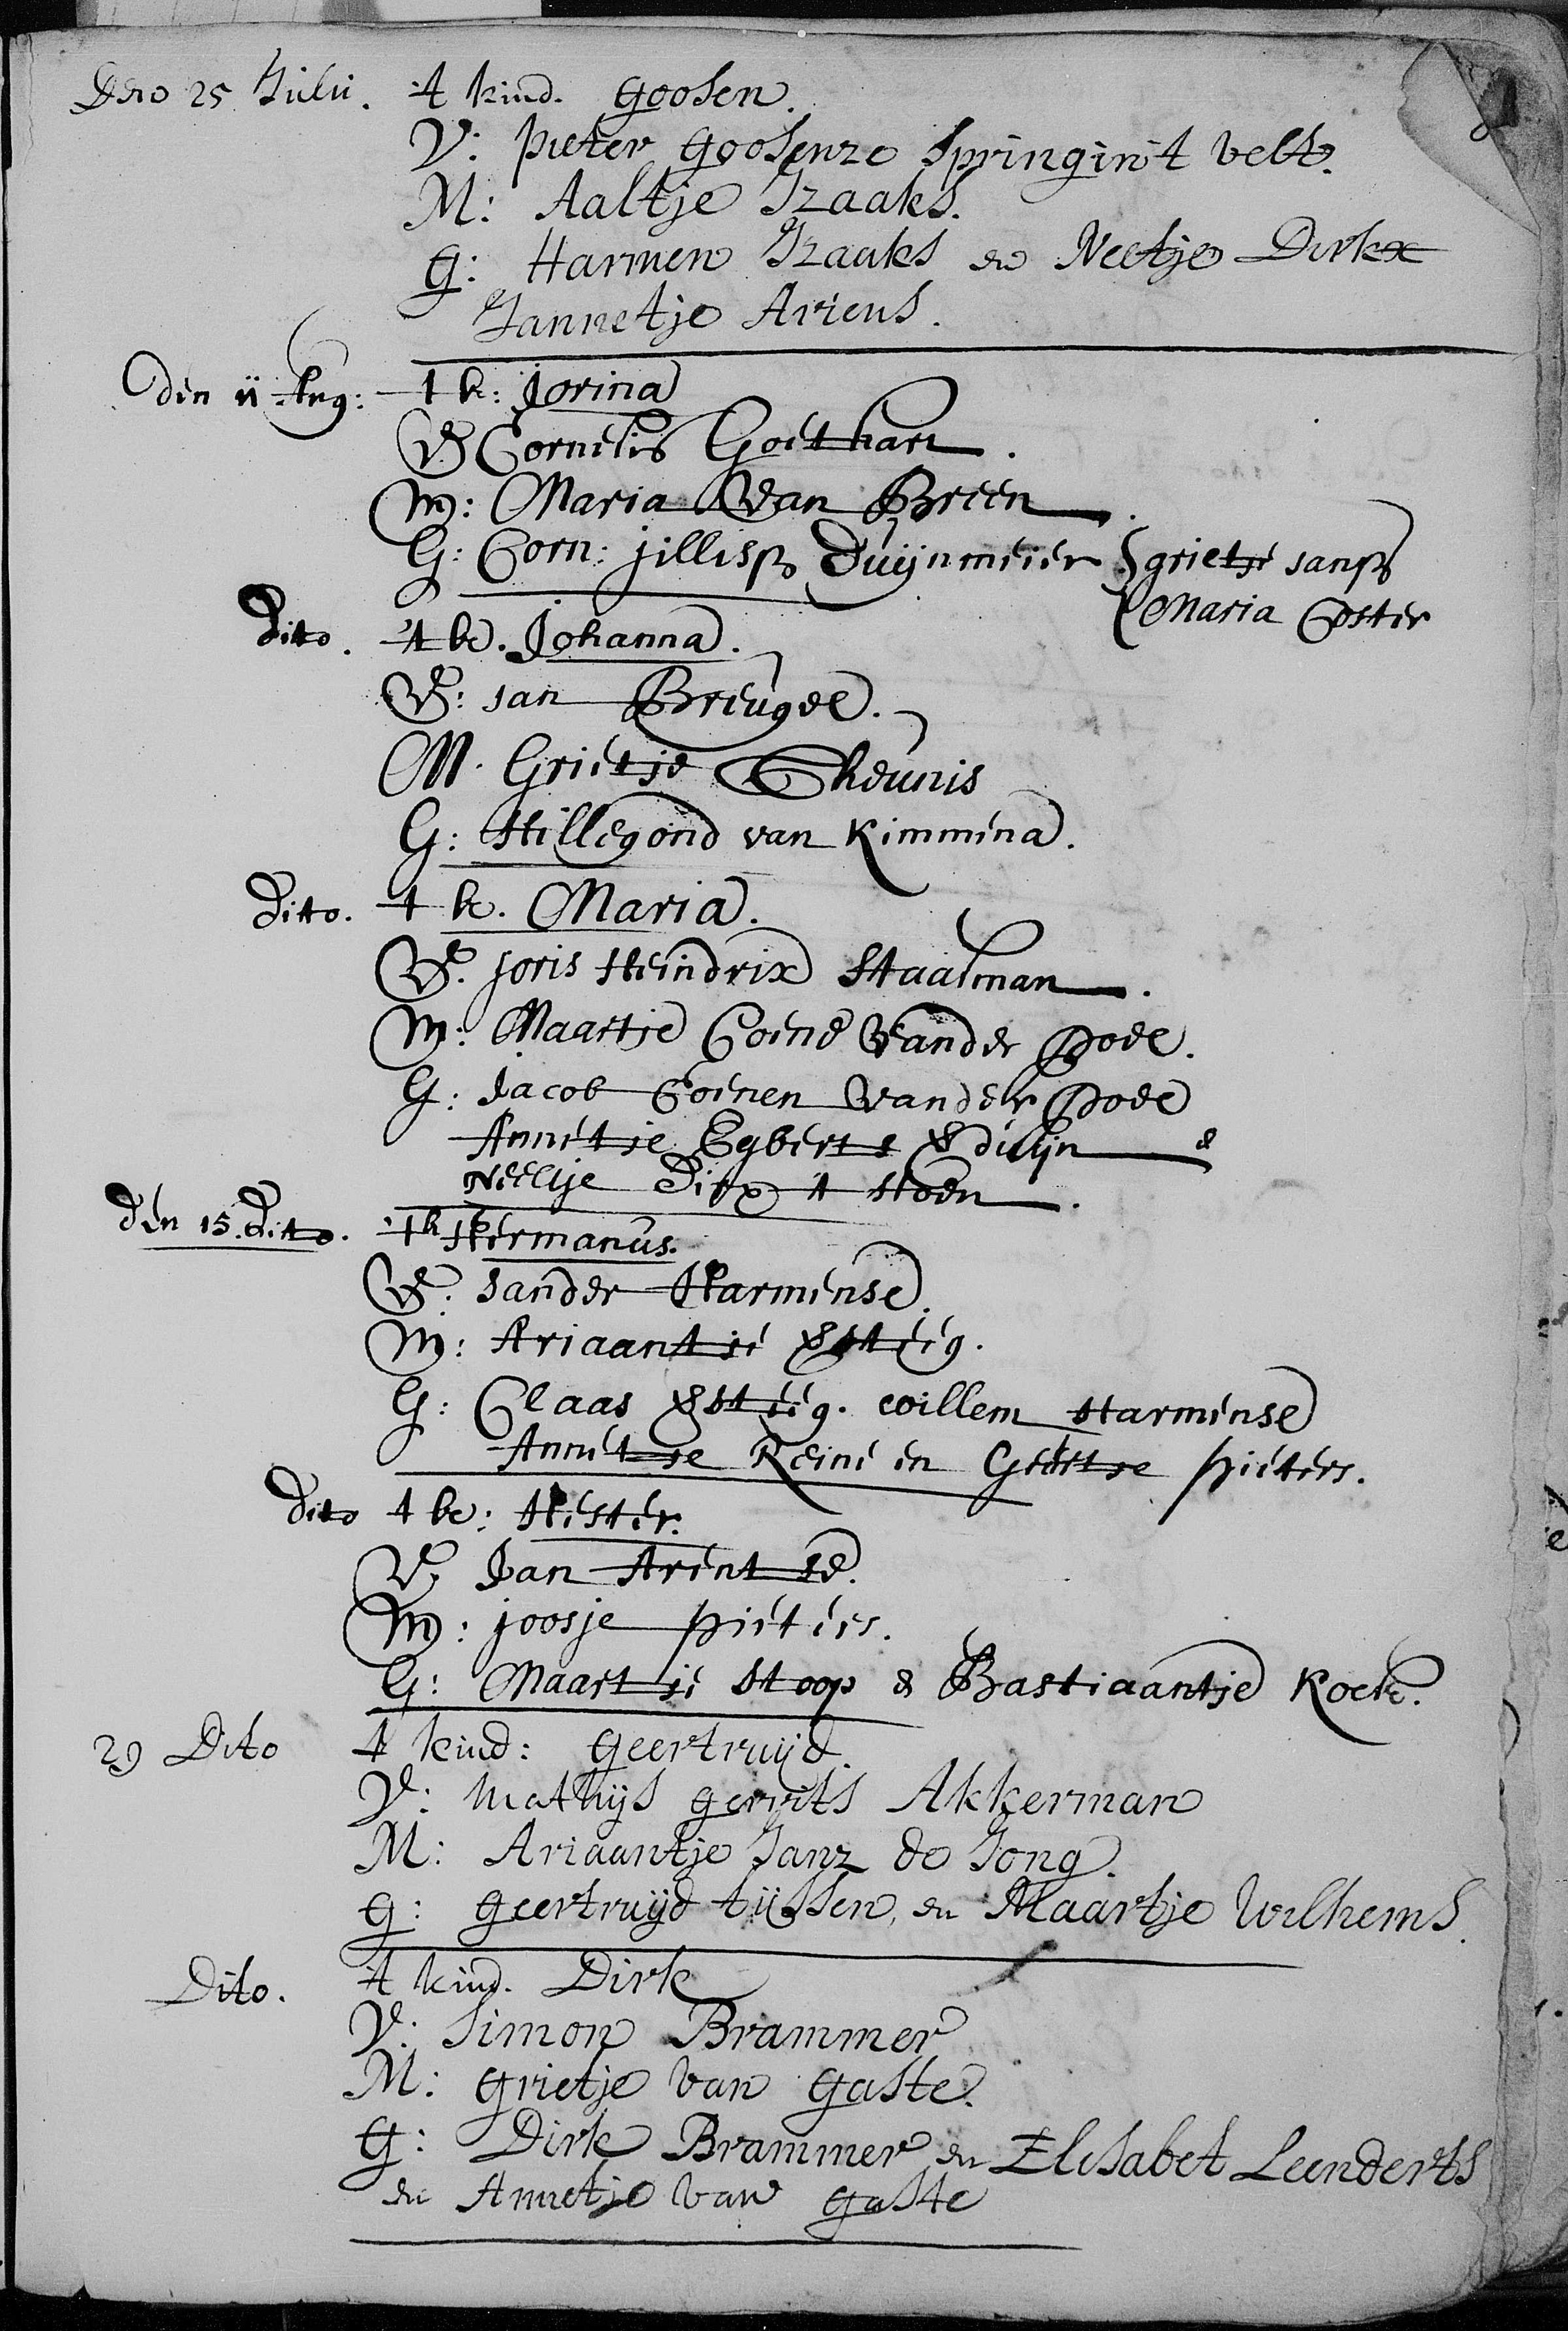 Dito 25 Julii. 't kind. Goosen.
V: Pieter Goosenze Springin't velt.
M: Aaltje Izaaks.
G: Harmen Izaaks en Neetje Dirkx
Jannetje Ariens.
den 11 Aug: t k: Jorina
V Cornelis Goethart.
M: Maria Van Breen.
G: Corn: jillisz Duijnmeier { grietje jansz
{ Maria Coster
Dito. 't k. Johanna.
V: jan Breugel.
M. Grietje Theunis
G: Hillegond van Kimmena.
Dito. t k. Maria.
V. joris Heindrix Staalman.
M: Maartje Coene Vander Poel.
G: Jacob Coenen Vander Poel
Annetje Egberts Verduijn &
Neeltje Dirx t Hoen.
den 15. Ditto. 't k Hermanus.
V. Sander Harmense.
M: Ariaantje Versteeg.
G: Claas Versteeg. willem Harmense
Annetje Reine en Geertje Pieters.
Dito t k: Hester.
V. Jan Arentse.
M: joosje Pieters.
G: Maartje Stoop & Bastiaantje Kock.
29 Dito t kind: Geertruijd.
V: Mathijs Gerrits Akkerman
M: Ariaantje Janz de Jong.
G: Geertruijd tijssen, en Maartje Wilhems.
Dito. 't kind. Dirk
V: Simon Brammer
M: Grietje van Gaste.
G: Dirk Brammer en Elisabet Leenderts
en Annetje van Gaste